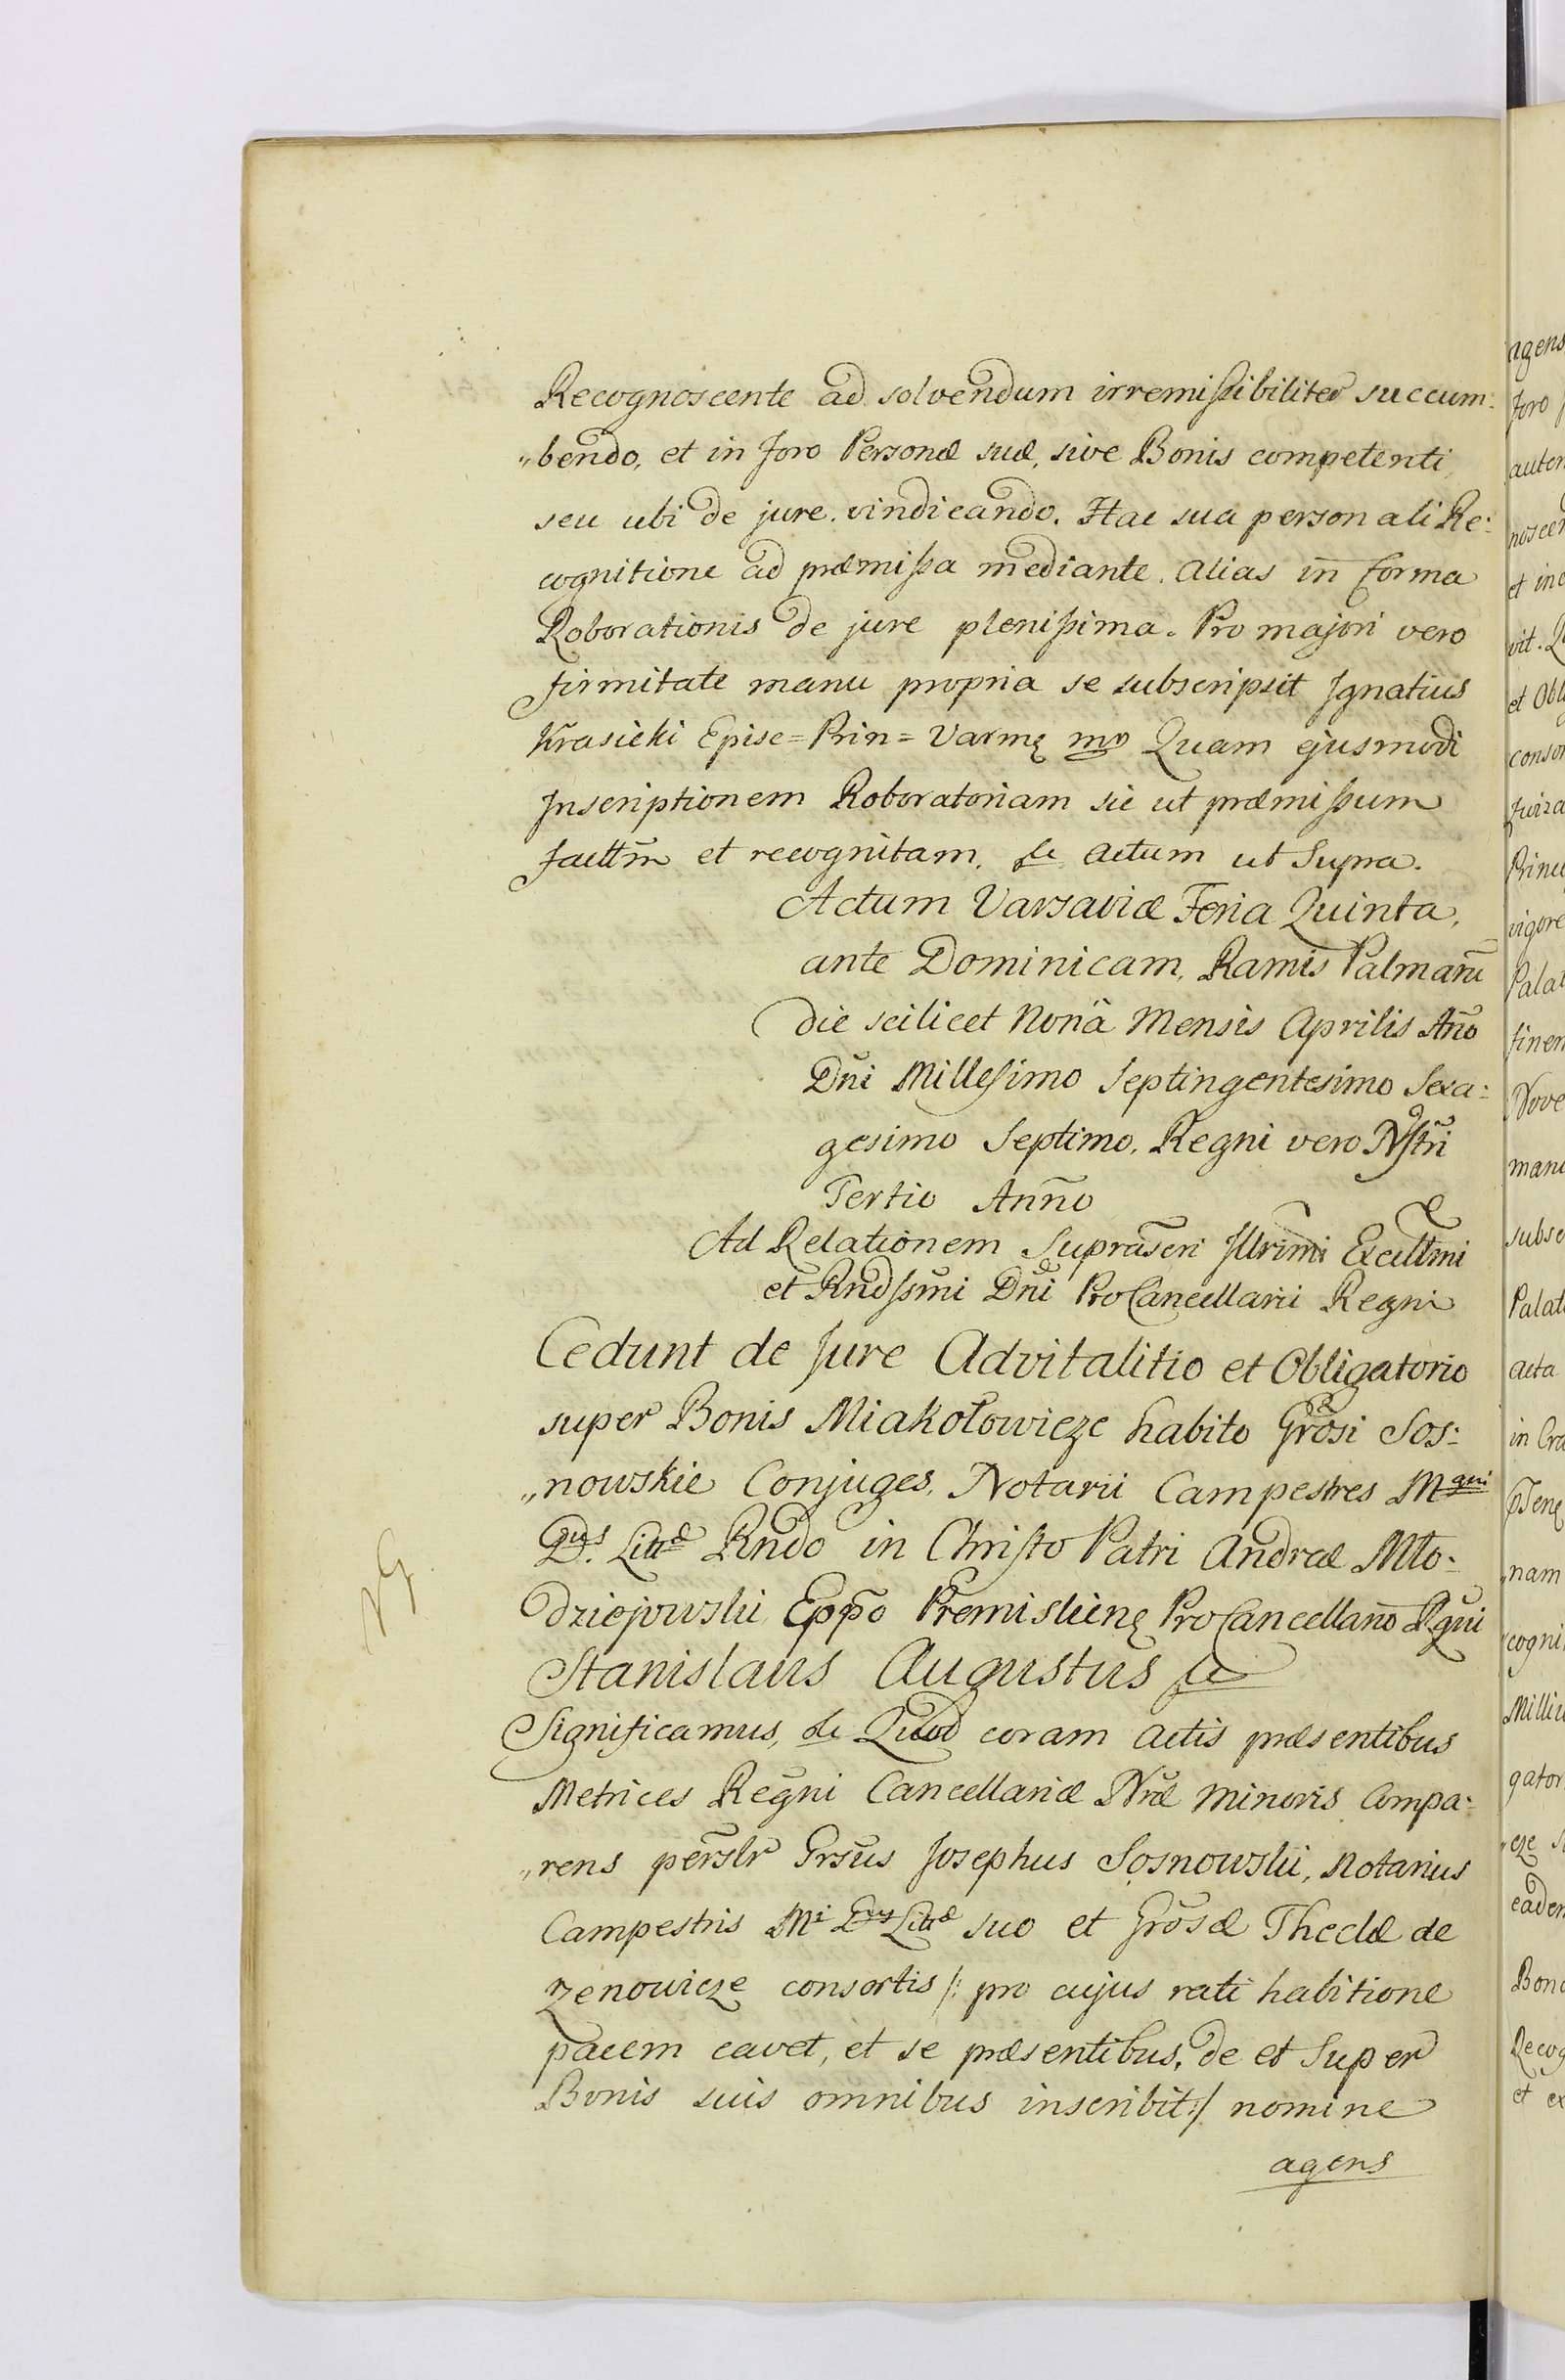 Recognoscente ad solvendum irremissibiliter succum:
„bendo, et in foro Personæ suæ, sive Bonis competenti,
seu ubi de jure vindicando. Hac sua personali Re:
cognitione ad præmissa mediante. Alias in̄ forma
Roborationis de jure plenissima. Pro majori vero
firmitate manu propria se subscripsit Ignatius
Krasicki Episc= Prin= Varmę mp Quam ejusmodi
Inscriptionem Roboratoriam sic ut præmissum
facttm̄ et recognitam. &c Actum ut Supra.
Actum Varsaviæ Feria Quinta,
ante Dominicam, Ramis Palmarū
die scilicet Nonā Mensis Aprilis Año
Dn̄i Millesimo Septingentesimo Sexa:
gesimo Septimo. Regni vero Nstri
Tertio Anno
Ad Relationem Suprascri Illrimi Excellmi
et Rndssmi Dni ProCancellarii Regni
Cedunt de Jure Advitalitio et Obligatorio
super Bonis Miakołowicze habito Grosi Sos:
„nowskie Conjuges, Notarii Campestres Mgni
Dus Littæ Rndo in Christo Patri Andræ Mło:
dziejowski Eppo Premislienę ProCancellario Rgni
Stanislaus Augustus &c
Significamus, &c Quod coram Actis præsentibus
Metrices Regni Cancellariæ Nræ Minoris Compa:
„rens perslr Grsus Josephus Sosnowski, Notarius
Campestris Mi Dus Littæ suo et Grosæ Theclæ de
Zenowicze consortis /: pro cujus rati habitione
pacem cavet, et se præsentibus, de et Super
Bonis suis omnibus inscribit :/ nomine
agens